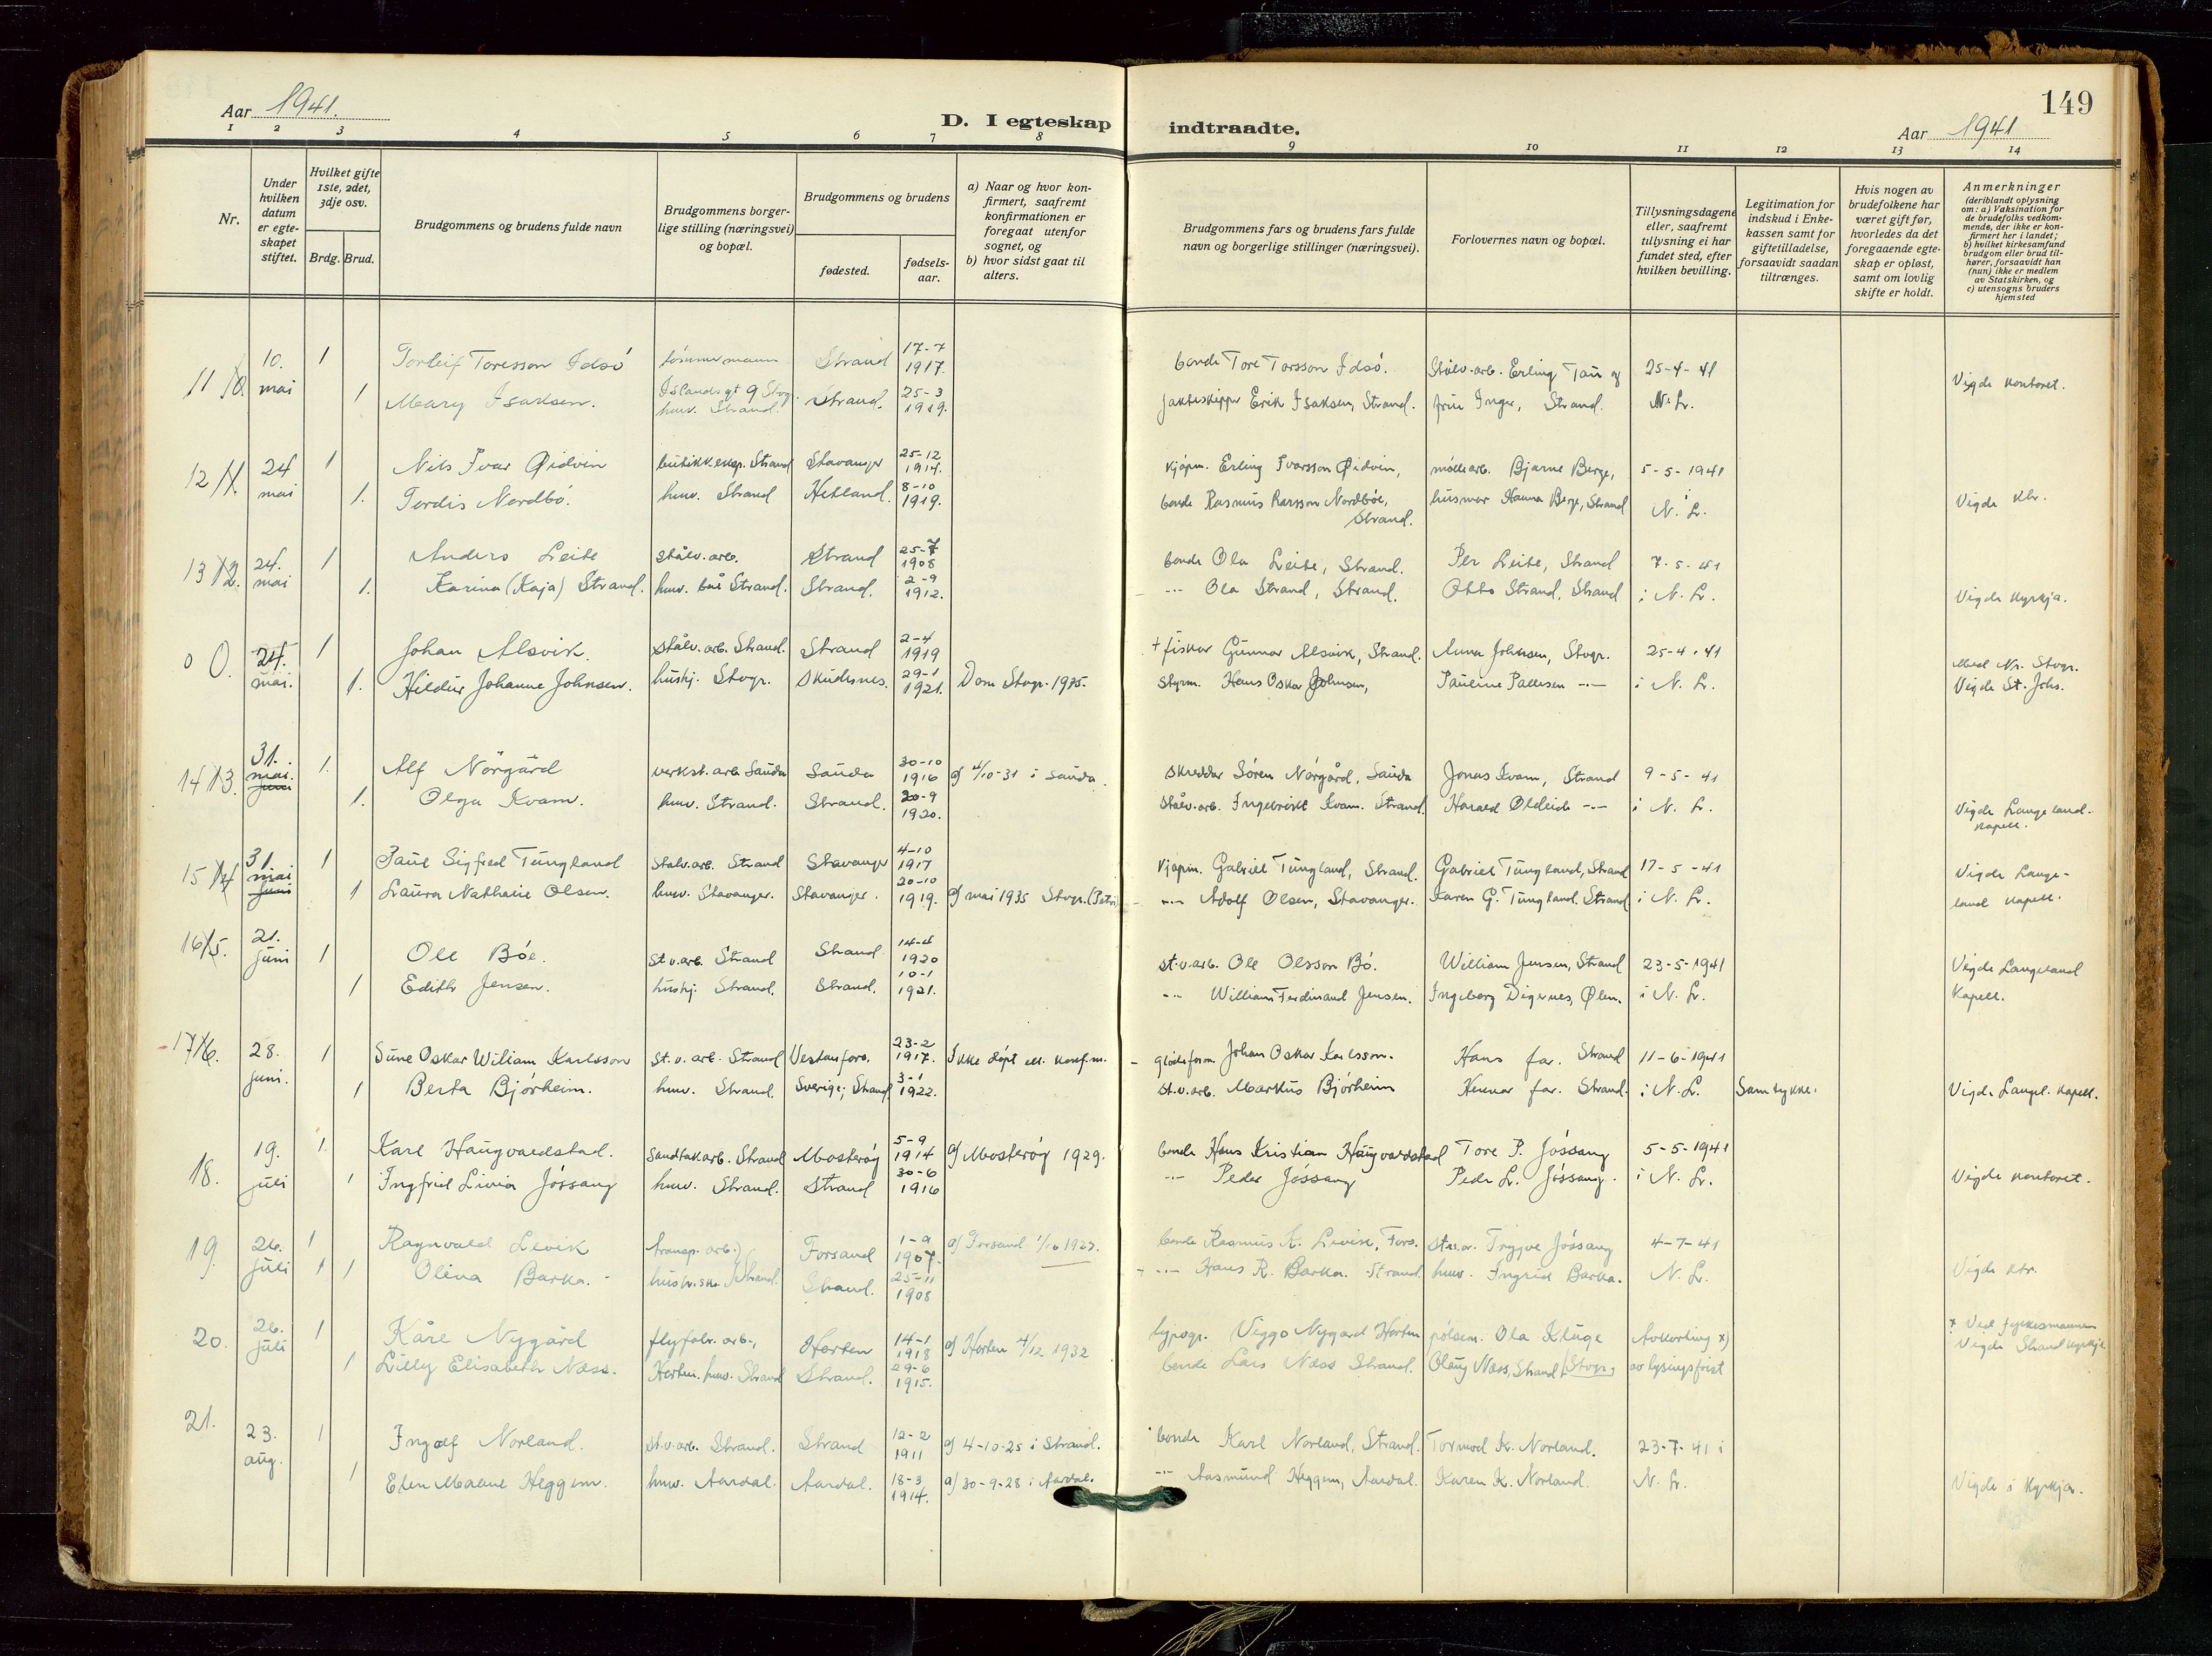 149
Aar 1941.
D. I egteskap indtraadte.
Aar 1941
1 2 3 4 5 6 7 8 9 10 11 12 13 14
Nr.
Under hvilken datum er egteskapet stiftet.
Hvilket gifte 1ste, 2det, 3dje osv.
Brdg. Brud.
Brudgommens og brudens fulde navn
Brudgommens borgerlige stilling (næringsvei) og bopæl.
Brudgommens og brudens
fødested.
fødselsaar.
a) Naar og hvor konfirmert, saafremt konfirmationen er foregaat utenfor sognet, og
b) hvor sidst gaat til alters.
Brudgommens fars og brudens fars fulde navn og borgerlige stillinger (næringsvei).
Forlovernes navn og bopæl.
Tillysningsdagene eller, saafremt tillysning ei har fundet sted, efter hvilken bevilling.
Legitimation for indskud i Enkekassen samt for giftetilladelse, forsaavidt saadan tiltrænges.
Hvis nogen av brudefolkene har været gift før, hvorledes da det foregaaende egteskap er opløst, samt om lovlig skifte er holdt.
Anmerkninger (deriblandt oplysning om: a) Vaksination for de brudefolks vedkommende, der ikke er konfirmert her i landet; b) hvilket kirkesamfund brudgom eller brud tilhører, forsaavidt han (hun) ikke er medlem av Statskirken, og c) utensogns bruders hjemsted
11 10. mai 1 Torleif Toresson Idsö tömmermann Strand 17-7 1917. bonde Tore Torsson Idsö. Stålv.arb. Erling Tau og 25-4-41
1 Mary Isaksen. Islandsgt 9 Stvg. husv. Strand. Strand. 25-3 1919. jakteskippr Erik Isaksen, Strand. fru Inger, Strand. N. Lr. Vigde kontoret.
12 24 mai 1 Nils Ivar Øidvin butikk.eksp. Strand Stavanger 25-12 1914. kjöpm. Erling Ivarsson Øidvin, möllearb. Bjarne Berge, 5-5-1941
1. Tordis Nordbö. husv. Strand Hetland. 8-10 1919. bonde Rasmus Larsson Nordböe, Strand. husmor Hanna Berge, Strand N. Lr. Vigde ktr.
13 24. mai 1 Anders Leite stålv.arb. Strand 25-7 1908 bonde Ola Leite, Strand. Per Leite, Strand 7-5-41
1. Karina (Kaja) Strand. husv. båe Strand. Strand. 2-9 1912. --- Ola Strand, Strand. Otto Strand, Strand i N. Lr. Vigde kyrkja.
0 24. mai. 1 Johan Alsvik. stålv. arb. Strand. Strand 2-4 1919 + fiskar Gunnar Alsvik, Strand. Anna Johnsen, Stvgr. 25-4-41
1. Hildur Johanne Johnsen. hushj. Stvgr. Skudesnes. 29-1 1921. Dom Stvgr. 1935. styrm. Hans Oskar Johnsen, Pauline Pallesen --- i N. Lr. Vigde St. Johs.
14 31. mai. 1. Alf Nörgård verkst.arb. Sauda Sauda 30-10 1916 a) 4/10-31 i Sauda. skreddar Sören Nörgård, Sauda Jonas Kvam, Strand 9-5-41
1. Olga Kvam. husv. Strand. Strand. 20-9 1920. stålv.arb. Ingebrikt Kvam. Strand Harald Oldeide --- i N. Lr. Vigde Langeland. kapell.
15 31. mai 1 Paul Sigfred Tungland stalv.arb. Strand Stavanger 4-10 1917 kjöpm. Gabriel Tungland, Strand. Gabriel Tungland, Strand 17-5-41
1 Laura Nathalie Olsen. husv. Stavanger. Stavanger. 20-10 1919. a) mai 1935 Stvgr. (Petri) --- Adolf Olsen, Stavanger. Karen G. Tungland. Strand i N. Lr. Vigde Langeland kapell.
16 21. juni 1 Ole Böe. st.v.arb. Strand Strand 14-4 1920 st.v.arb. Ole Olsson Bö. William Jensen, Strand 23-5-1941
1 Edith Jensen. hushj. Strand. Strand. 10-1 1921. --- William Ferdinand Jensen. Ingeborg Digernes, Ølen. i N. Lr. Vigde Langeland Kapell.
17 28. juni. 1 Sune Oskar Wiliam Karlsson st.v. arb. Strand Vestanfors. 23-2 1917. Ikke döpt ell. konfirm. glödeform Johan Oskar Karlsson. Hans far. Strand 11-6-1941
1 Berta Bjørheim. husv. Strand. Sverige; Strand 3-1 1922. st.v.arb. Markus Bjørheim Hennar far. Strand. i N. Lr. Samtykke. Vigde Langel. kapell.
18. 19. juli 1. Karl Haugvaldstad. sandtakarb. Strand Mosteröy 5-9 1914 a) Mosteröy 1929. bonde Hans Kristian Haugvaldstad Tore P. Jössang 5-5-1941
1 Ingfrid Livia Jössang husv. Strand. Strand 30-6 1916 --- Peder Jössang Peder L. Jössang. i N. Lr. Vigde kontoret.
19. 26. juli 1 Ragnvald Levik transp. arb. Forsand 1-9 1907. a) Forsand 1/10 1922. bonde Rasmus A. Levik, Fors. Trygve Jössang 4-7-41
1 1 Olina Barka. Strand. Strand. 25-11 1908 --- Hans R. Barka. Strand. husv. Ingrid Barka. N. Lr. Vigde ktr.
20. 26. juli 1 Kåre Nygård flyfabr. arb., Horten 14-1 1918 a) Horten 4/12 1932 typogr. Viggo Nygard Horten pölsem. Ola Kluge Avkorting x) x Ved fylkesmannen
1 Lilly Elisabeth Næss. Horten. husv. Strand Strand. 29-6 1915. bonde Lars Næss Strand. Olaug Næss, Strand (Stvgr.) av lysingsfrist Vigde Strand kyrkje
21. 23. aug. 1 Ingolf Norland. st.v.arb. Strand. Strand 12-2 1911 a) 4-10-25 i Strand. bonde Karl Norland, Strand. Tormod K. Norland. 23-7-41 i
1 Elen Malene Heggem. husv. Aardal. Aardal. 18-3 1914. a) 30-9-28 i Aardal. --- Aasmund Heggem, Aardal. Karen K. Norland. N. Lr. Vigde i kyrkja.